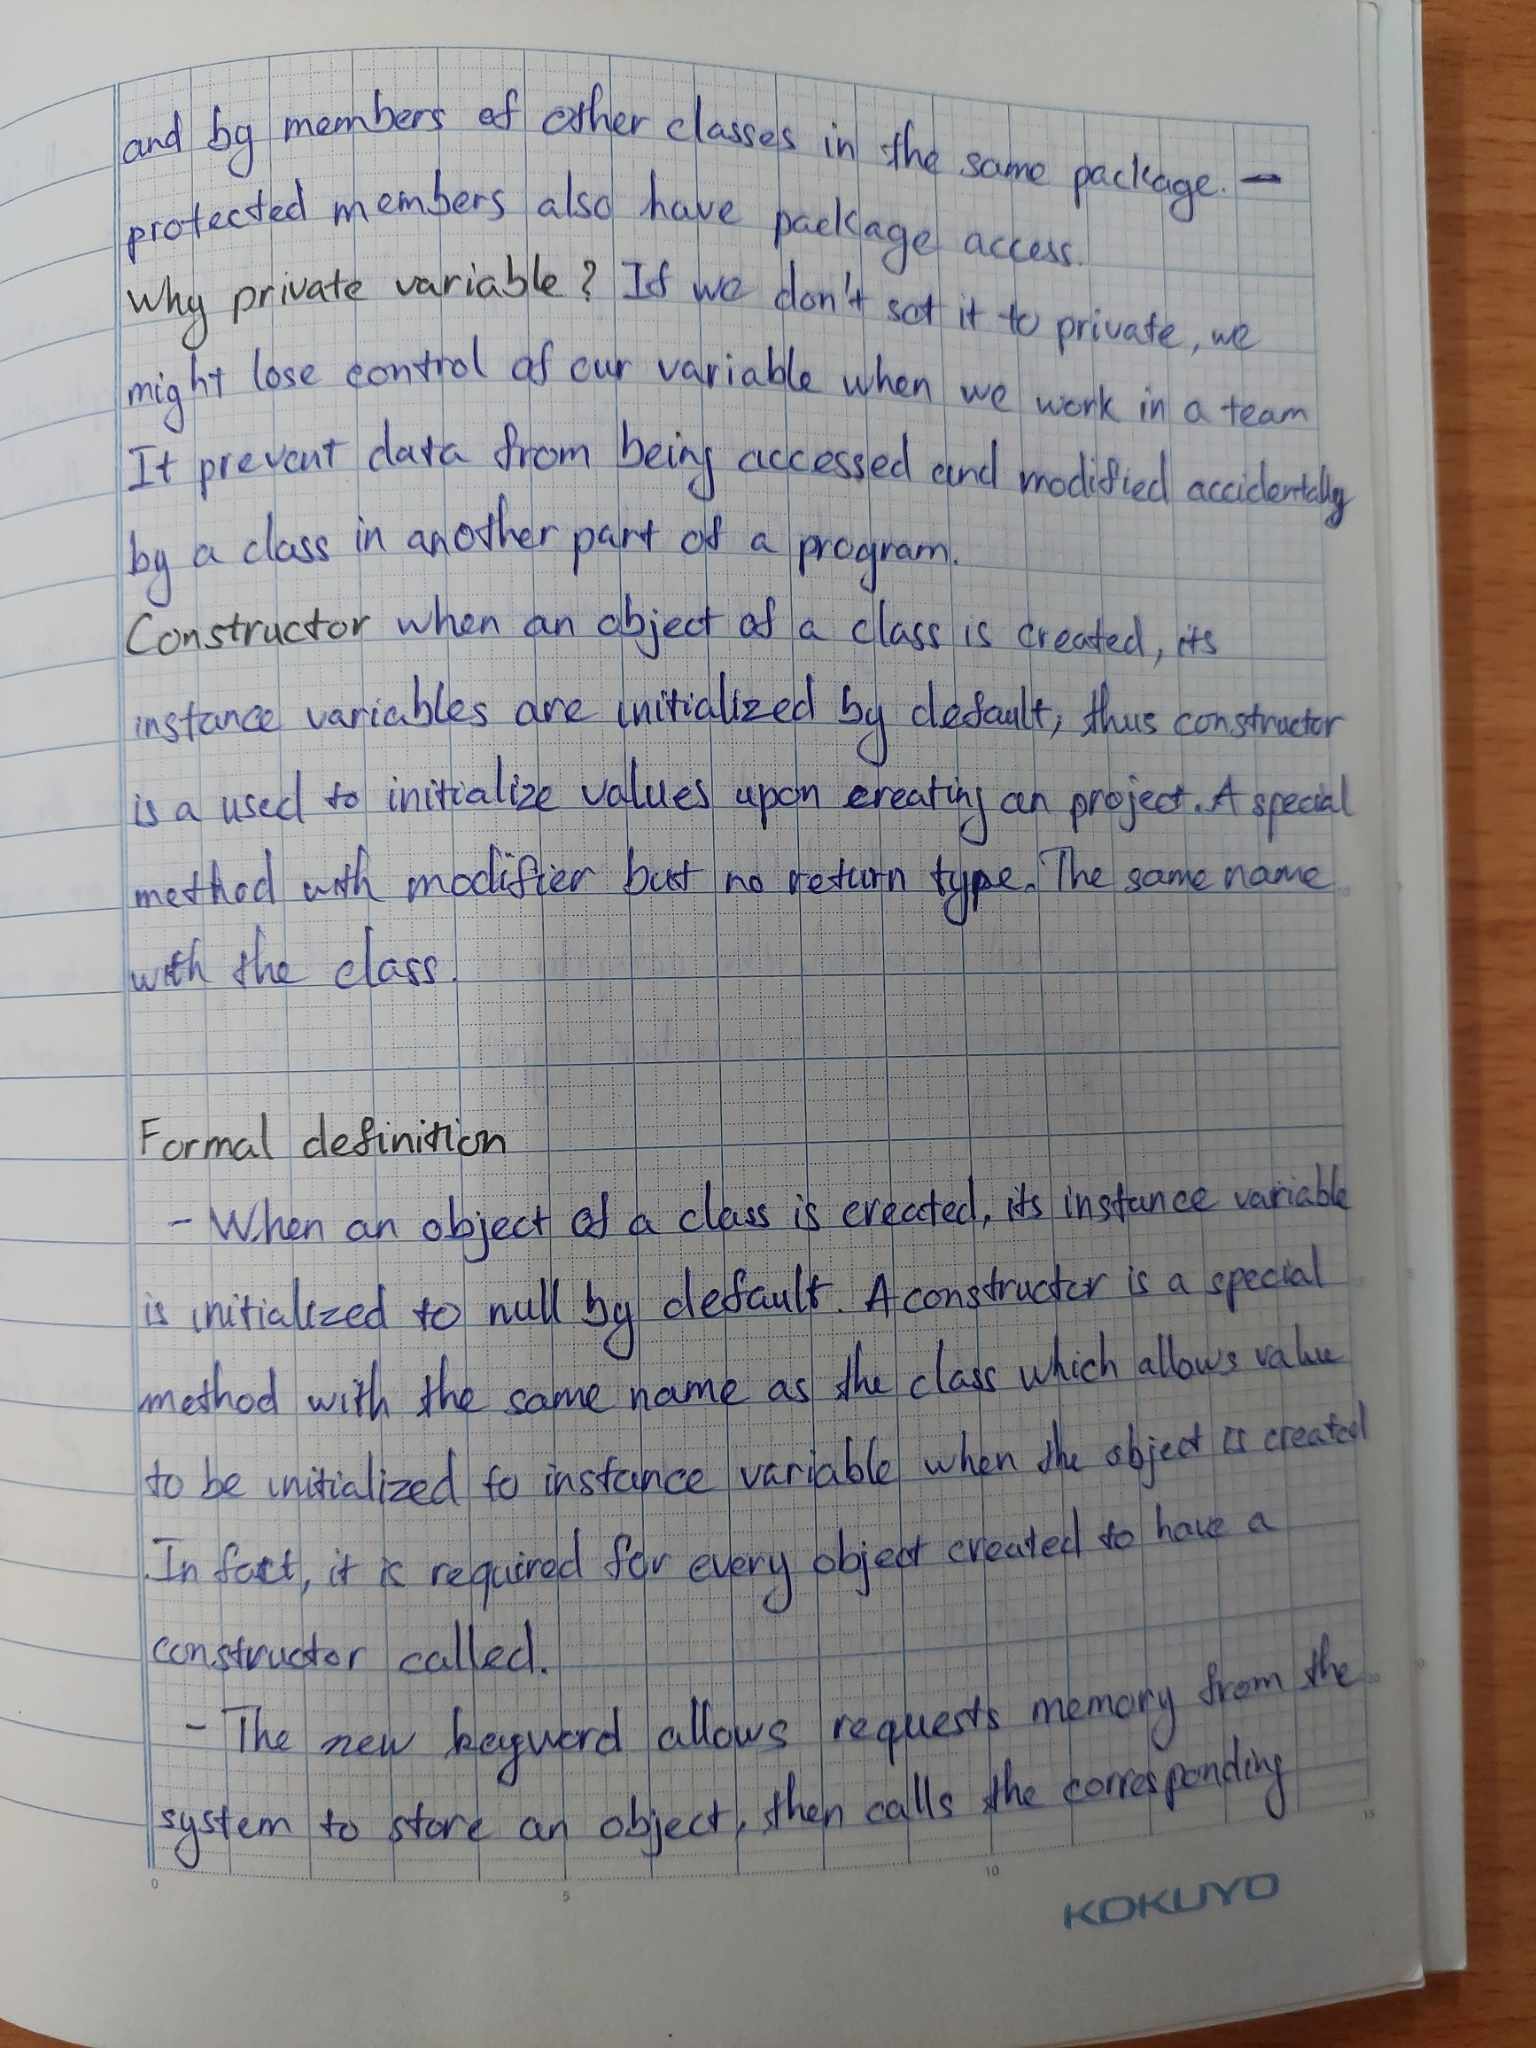 and by members of other classes in the same package. -
protected members also have package access.
Why private variable? If we don't set it to private, we
might lose control of our variable when we work in a team
It prevent data from being accessed and modified accidentally
by a class in another part of a program.
Constructor when an object of a class is created, its
instance variables are initialized by default, thus constructor
is a used to initialize values upon creating an project. A special
method with modifier but no return type. The same name
with the class.
Formal definition
- When an object of a class is created, its instance variable
is initialized to null by default. A constructor is a special
method with the same name as the class which allows value
to be initialized to instance variable when the object is created
In fact, it is required for every object created to have a
constructor called.
- The new keyword allows requests memory from the
system to store an object, then calls the corresponding
0 5 10 15
KOKUYO